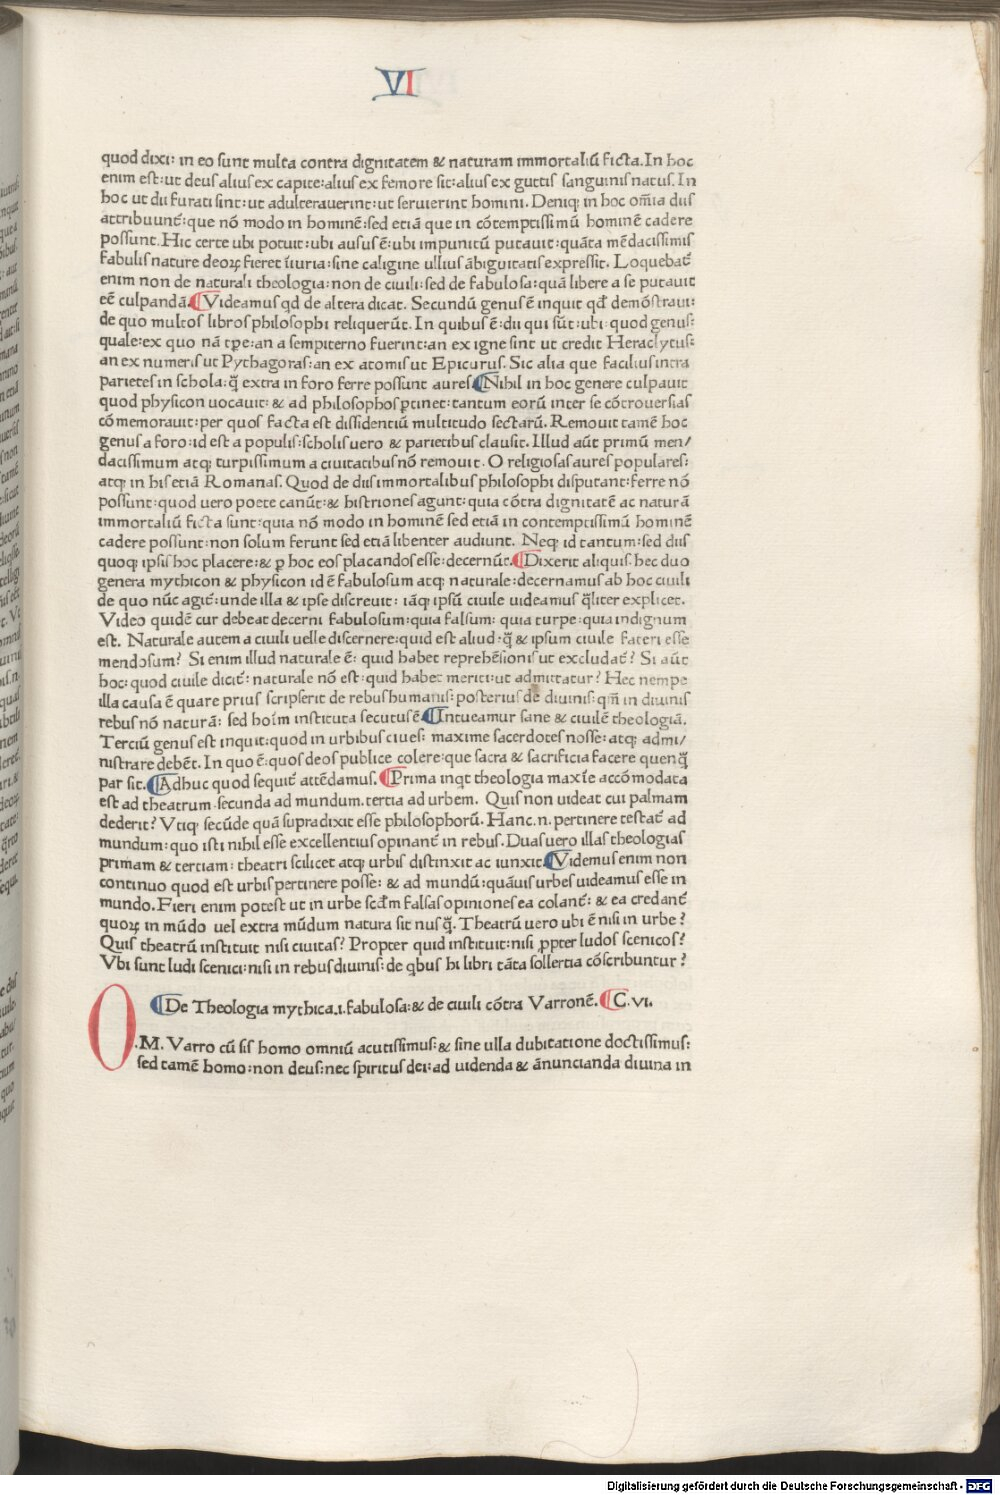 VI
quod dixi: in eo sunt multa contra dignitatem & naturam immortaliũ ficta. In hoc
enim est: ut deus alius ex capite: alius ex femore sit: alius ex guttis sanguinis natus. In
hoc ut dii furati sint: ut adulterauerint: ut seruierint homini. Deniq; in hoc om̃ia diis
attribuunt̃: que nõ modo in hominẽ: sed etiã que in cõtemptissimũ hominẽ cadere
possunt. Hic certe ubi potuit: ubi ausus ẽ: ubi impunitũ putauit: quãta mẽdacissimis
fabulis nature deoꝝ fieret iĩuria: sine caligine ullius ãbiguitatis expressit. Loquebat̃
enim non de naturali theologia: non de ciuili: sed de fabulosa: quã libere a se putauit
eẽ culpandã. Videamus qd̃ de altera dicat. Secundũ genus ẽ inquit qd̃ demõstraui:
de quo multos libros philosophi reliquerũt. In quibus ẽ: dii qui sũt: ubi: quod genus:
quale: ex quo nã tp̃e: an a sempiterno fuerint: an ex igne sint ut credit Heraclytus:
an ex numeris ut Pythagoras: an ex atomis ut Epicurus. Sic alia que facilius intra
parietes in schola: q̃ extra in foro ferre possunt aures. Nihil in hoc genere culpauit
quod physicon uocauit: & ad philosophos ꝑtinet: tantum eorũ inter se cõtrouersias
cõmemorauit: per quos facta est dissidentiũ multitudo sectarũ. Remouit tamẽ hoc
genus a foro: id est a populis: scholis uero & parietibus clausit. Illud aũt primũ men/
dacissimum atq; turpissimum a ciuitatibus nõ remouit. O religiosas aures populares:
atq; in his etiã Romanas. Quod de diis immortalibus philosophi disputant: ferre nõ
possunt: quod uero poete canũt: & histriones agunt: quia cõtra dignitatẽ ac naturã
immortaliũ ficta sunt: quia nõ modo in hominẽ sed etiã in contemptissimũ hominẽ
cadere possunt: non solum ferunt sed etiã libenter audiunt. Neq; id tantum: sed diis
quoq; ipsis hoc placere: & ꝑ hoc eos placandos esse: decernũt. Dixerit aliquis. hec duo
genera mythicon & physicon id ẽ fabulosum atq; naturale: decernamus ab hoc ciuili
de quo nũc agit̃: unde illa & ipse discreuit: iãq; ipsũ ciuile uideamus q̃liter explicet.
Video quidẽ cur debeat decerni fabulosum: quia falsum: quia turpe: quia indignum
est. Naturale autem a ciuili uelle discernere: quid est aliud: q̃ & ipsum ciuile fateri esse
mendosum? Si enim illud naturale ẽ: quid habet reprehẽsionis ut excludat̃? Si aũt
hoc: quod ciuile dicit̃: naturale nõ est: quid habet meriti: ut admittatur? Hec nempe
illa causa ẽ quare prius scripserit de rebus humanis: posterius de diuinis: qm̃ in diuinis
rebus nõ naturã: sed hoĩm instituta secutus ẽ. Intueamur sane & ciuilẽ theologiã.
Tertiũ genus est inquit: quod in urbibus ciues: maxime sacerdotes nosse: atq; admi/
nistrare debẽt. In quo ẽ: quos deos publice colere: que sacra & sacrificia facere quenq̃
par sit. Adhuc quod sequit̃ attẽdamus. Prima inqt theologia maxĩe accõmodata
est ad theatrum. secunda ad mundum. tertia ad urbem. Quis non uideat cui palmam
dederit? Vtiq; secũde quã supra dixit esse philosophorũ. Hanc .n. pertinere testat̃ ad
mundum: quo isti nihil esse excellentius opinant̃ in rebus. Duas uero illas theologias
primam & tertiam: theatri scilicet atq; urbis distinxit ac iunxit. Videmus enim non
continuo quod est urbis pertinere posse: & ad mundũ: quãuis urbes uideamus esse in
mundo. Fieri enim potest ut in urbe scd̃m falsas opiniones ea colant̃: & ea credant̃
quoꝝ in mũdo uel extra mũdum natura sit nusq̃. Theatrũ uero ubi ẽ nisi in urbe?
Quis theatrũ instituit nisi ciuitas? Propter quid instituit: nisi ꝓpter ludos scenicos?
Vbi sunt ludi scenici: nisi in rebus diuinis: de qbus hi libri tãta sollertia cõscribuntur?
De Theologia mythica .i. fabulosa: & de ciuili cõtra Varronẽ. C. vi.
O .M. Varro cũ sis homo omniũ acutissimus: & sine ulla dubitatione doctissimus:
sed tamẽ homo: non deus: nec spiritus dei: ad uidenda & ãnuncianda diuina in
Digitalisierung gefördert durch die Deutsche Forschungsgemeinschaft - DFG